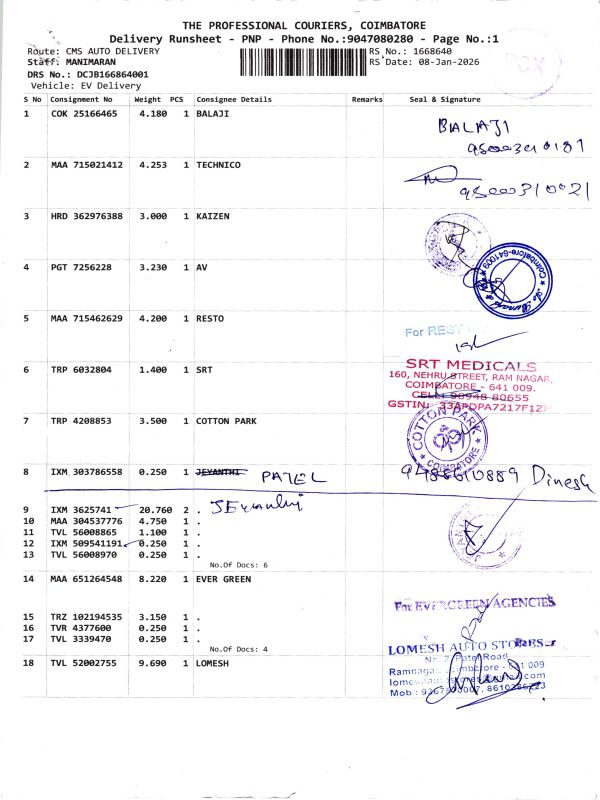 THE PROFESSIONAL COURIERS, COIMBATORE
Delivery Runsheet - PNP - Phone No.:9047080280 - Page No.:1
Route: CMS AUTO DELIVERY
RS No.: 1668640
Staff: MANIMARAN
RS Date: 08-Jan-2026
DRS No.: DCJB166864001
Vehicle: EV Delivery
POX
S No Consignment No Weight PCS Consignee Details Remarks Seal & Signature
1 COK 25166465 4.180 1 BALAJI
BALAJI
2 MAA 715021412 4.253 1 TECHNICO
3 HRD 362976388 3.000 1 KAIZEN
4 PGT 7256228 3.230 1 AV
Coimbatore-641009
5 MAA 715462629 4.200 1 RESTO
For REST
6 TRP 6032804 1.400 1 SRT
SRT MEDICALS
160, NEHRU STREET, RAM NAGAR,
COIMBATORE - 641 009.
CELL: 98948 80655
GSTIN:
7 TRP 4208853 3.500 1 COTTON PARK
COTTON PARK
COIMBATORE
8 IXM 303786558 0.250 1 JEYANTHI PATEL 9488610889 Dinesh
9 IXM 3625741 20.760 2 .
10 MAA 304537776 4.750 1 .
11 TVL 56008865 1.100 1 .
12 IXM 509541191 0.250 1 .
13 TVL 56008970 0.250 1 .
No.Of Docs: 6
14 MAA 651264548 8.220 1 EVER GREEN
For EVERGREEN AGENCIES
15 TRZ 102194535 3.150 1 .
16 TVR 4377600 0.250 1 .
17 TVL 3339470 0.250 1 .
No.Of Docs: 4
18 TVL 52002755 9.690 1 LOMESH
LOMESH AUTO STORES
Patel Road